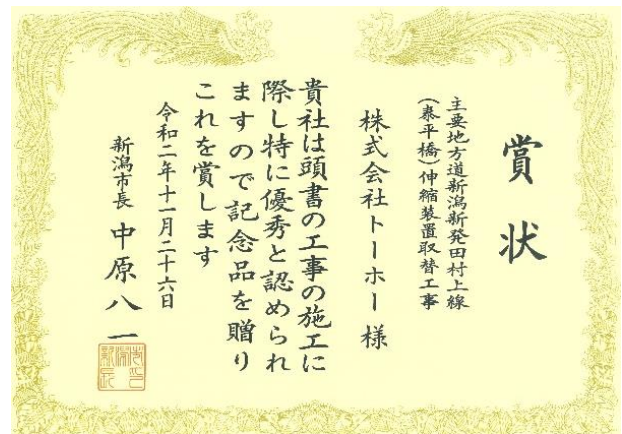 賞状
主要地方道新潟新発田村上線
(泰平橋)伸縮装置取替工事
株式会社トーホー様
貴社は頭書の工事の施工に
際し特に優秀と認められ
ますので記念品を贈り
これを賞します
令和二年十一月二十六日
新潟市長 中原八一